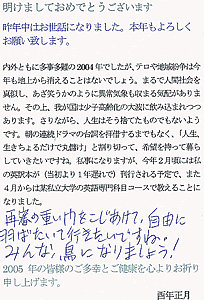 明けましておめでとうございます
昨年中はお世話になりました。本年もよろしく
お願い致します。
内外ともに多事多難の2004年でしたが、テロや地球紛争は今
年も地上から消えることはないでしょう。まるで人間社会を
真似し、あざ笑うかのように異常気象も収まる気配がありま
せん。その上、我が国は少子高齢化の大波に飲み込まれつつ
あります。さりながら、人生はそう捨てたものでもないよう
です。朝の連続ドラマの台詞を拝借するまでもなく、「人生、
生きちょるだけで丸儲け」と割り切って、希望を持って暮ら
していきたいですね。私事になりますが、今年2月頃には私
の英訳本が（当初より1年遅れで）刊行される予定で、また
4月からは某私立大学の英語専門科目コースで教えることに
なりました。
再春の重い門をこじあけて、自由に
羽ばたいて行きたいですね。
みんな、鳥になりましょう！
2005年の皆様のご多幸とご健康を心よりお祈り
申し上げます。
酉年正月